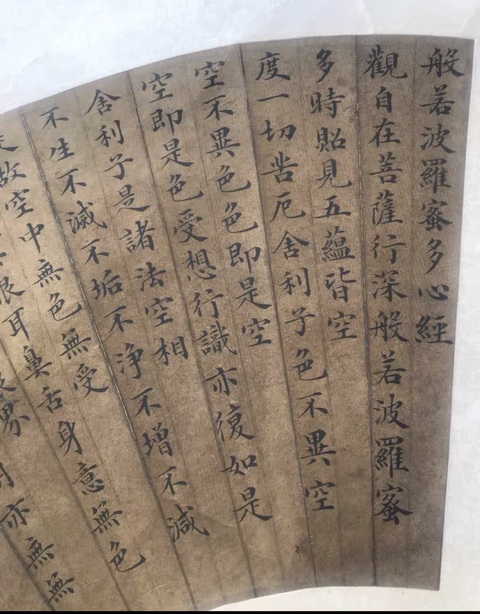 般若波羅蜜多心經
觀自在菩薩行深般若波羅蜜
多時貼見五蘊皆空
度一切苦厄舍利子色不異空
空不異色色即是空
空即是色受想行識亦復如是
舍利子是諸法空相
不生不滅不垢不淨不增不減
故空中無色無受
眼耳鼻舌身意無色
界
亦無無